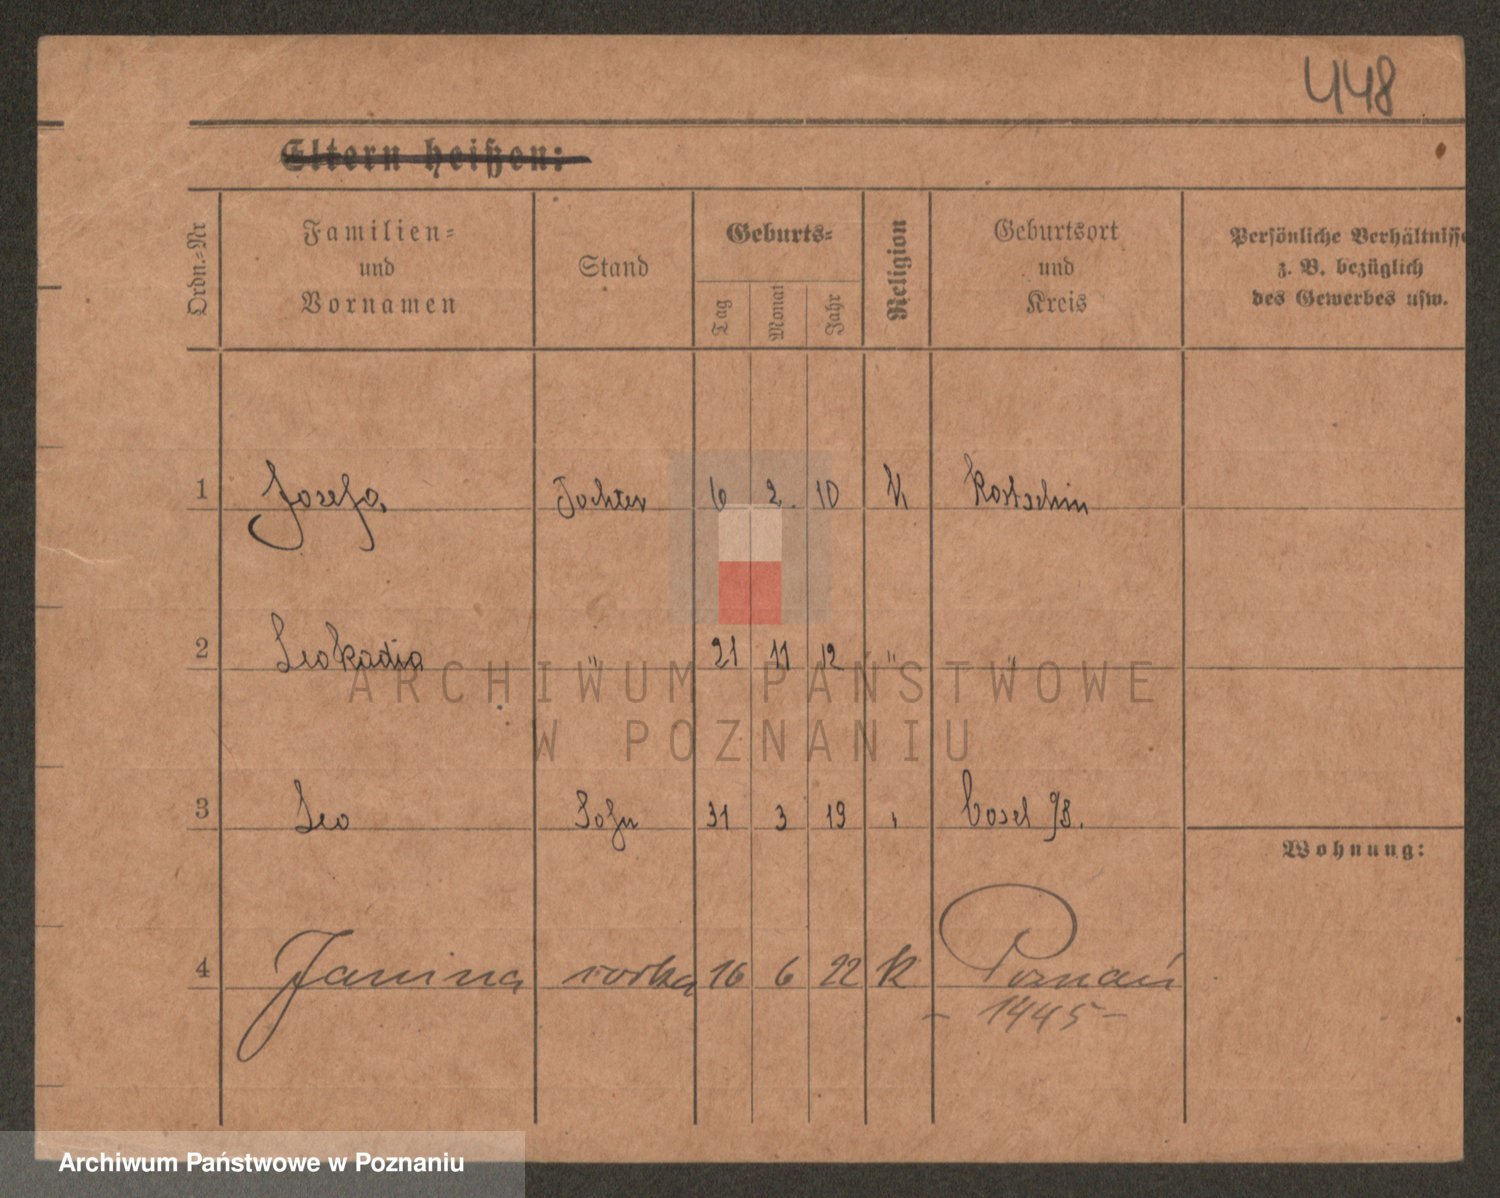 448
Eltern heißen:
Ordn.-Nr
Familien-
und
Vornamen
Stand
Geburts-
Tag
Monat
Jahr
Religion
Geburtsort
und
Kreis
Persönliche Verhältnisse
z. B. bezüglich
des Gewerbes usw.
1 Josefa Tochter 6 2. 10 K Kostschin
2 Leokadia " 21 11 12 " "
3 Leo Sohn 31 3 19 " Cosel
Wohnung:
4 Janina corka 16 6 22 K Poznań
- 1445 -
ARCHIWUM PAŃSTWOWE
W POZNANIU
Archiwum Państwowe w Poznaniu